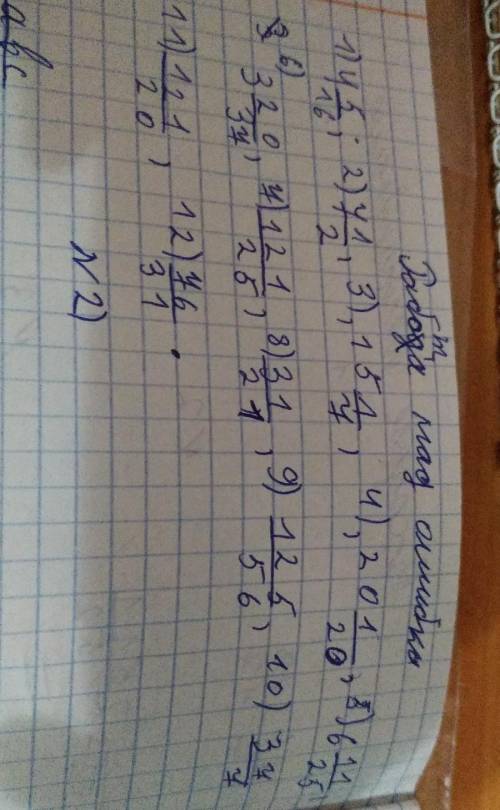 Работа над ошибки
1) 4 5/16, 2) 71/2, 3), 15 1/7, 4), 20 1/20, 5) 6 11/25
6) 3 20/37, 7) 121/25, 8) 31/21, 9) 125/56, 10) 37/7
11) 121/20, 12) 76/31.
№2)
abc